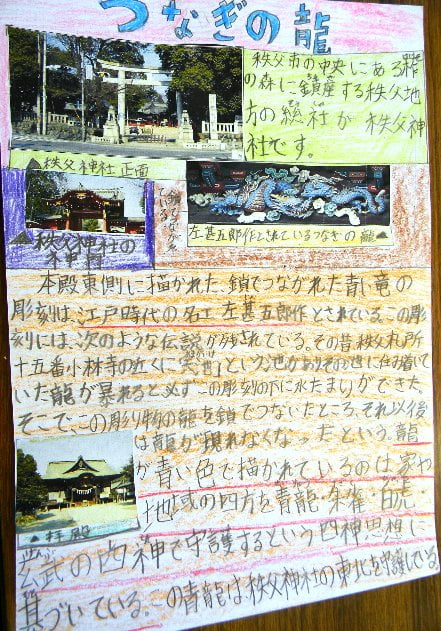 つなぎの龍
秩父市の中央にある柞
の森に鎮座する秩父地
方の総社が秩父神
社です。
▲秩父神社正面
左甚五郎作とされているつなぎの龍
秩父神社の
神門
本殿東側に描かれた、鎖でつながれた青い竜の
彫刻は、江戸時代の名工左甚五郎作とされている。この彫
刻には、次のような伝説が残されている。その昔秩父札所
十五番小林寺の近くに「天ヶ池」という池がありその池に住み着いて
いた龍が暴れると必ず、この彫刻の下に水たまりができた。
そこで、この彫り物の龍を鎖でつないだところ、それ以後
は龍が現れなくなったという。龍
が青い色で描かれているのは家や
地域の四方を青龍・朱雀・白虎・
玄武の四神で守護するという四神思想に
基づいている。この青龍は秩父神社の東北を守護している
▲拝殿